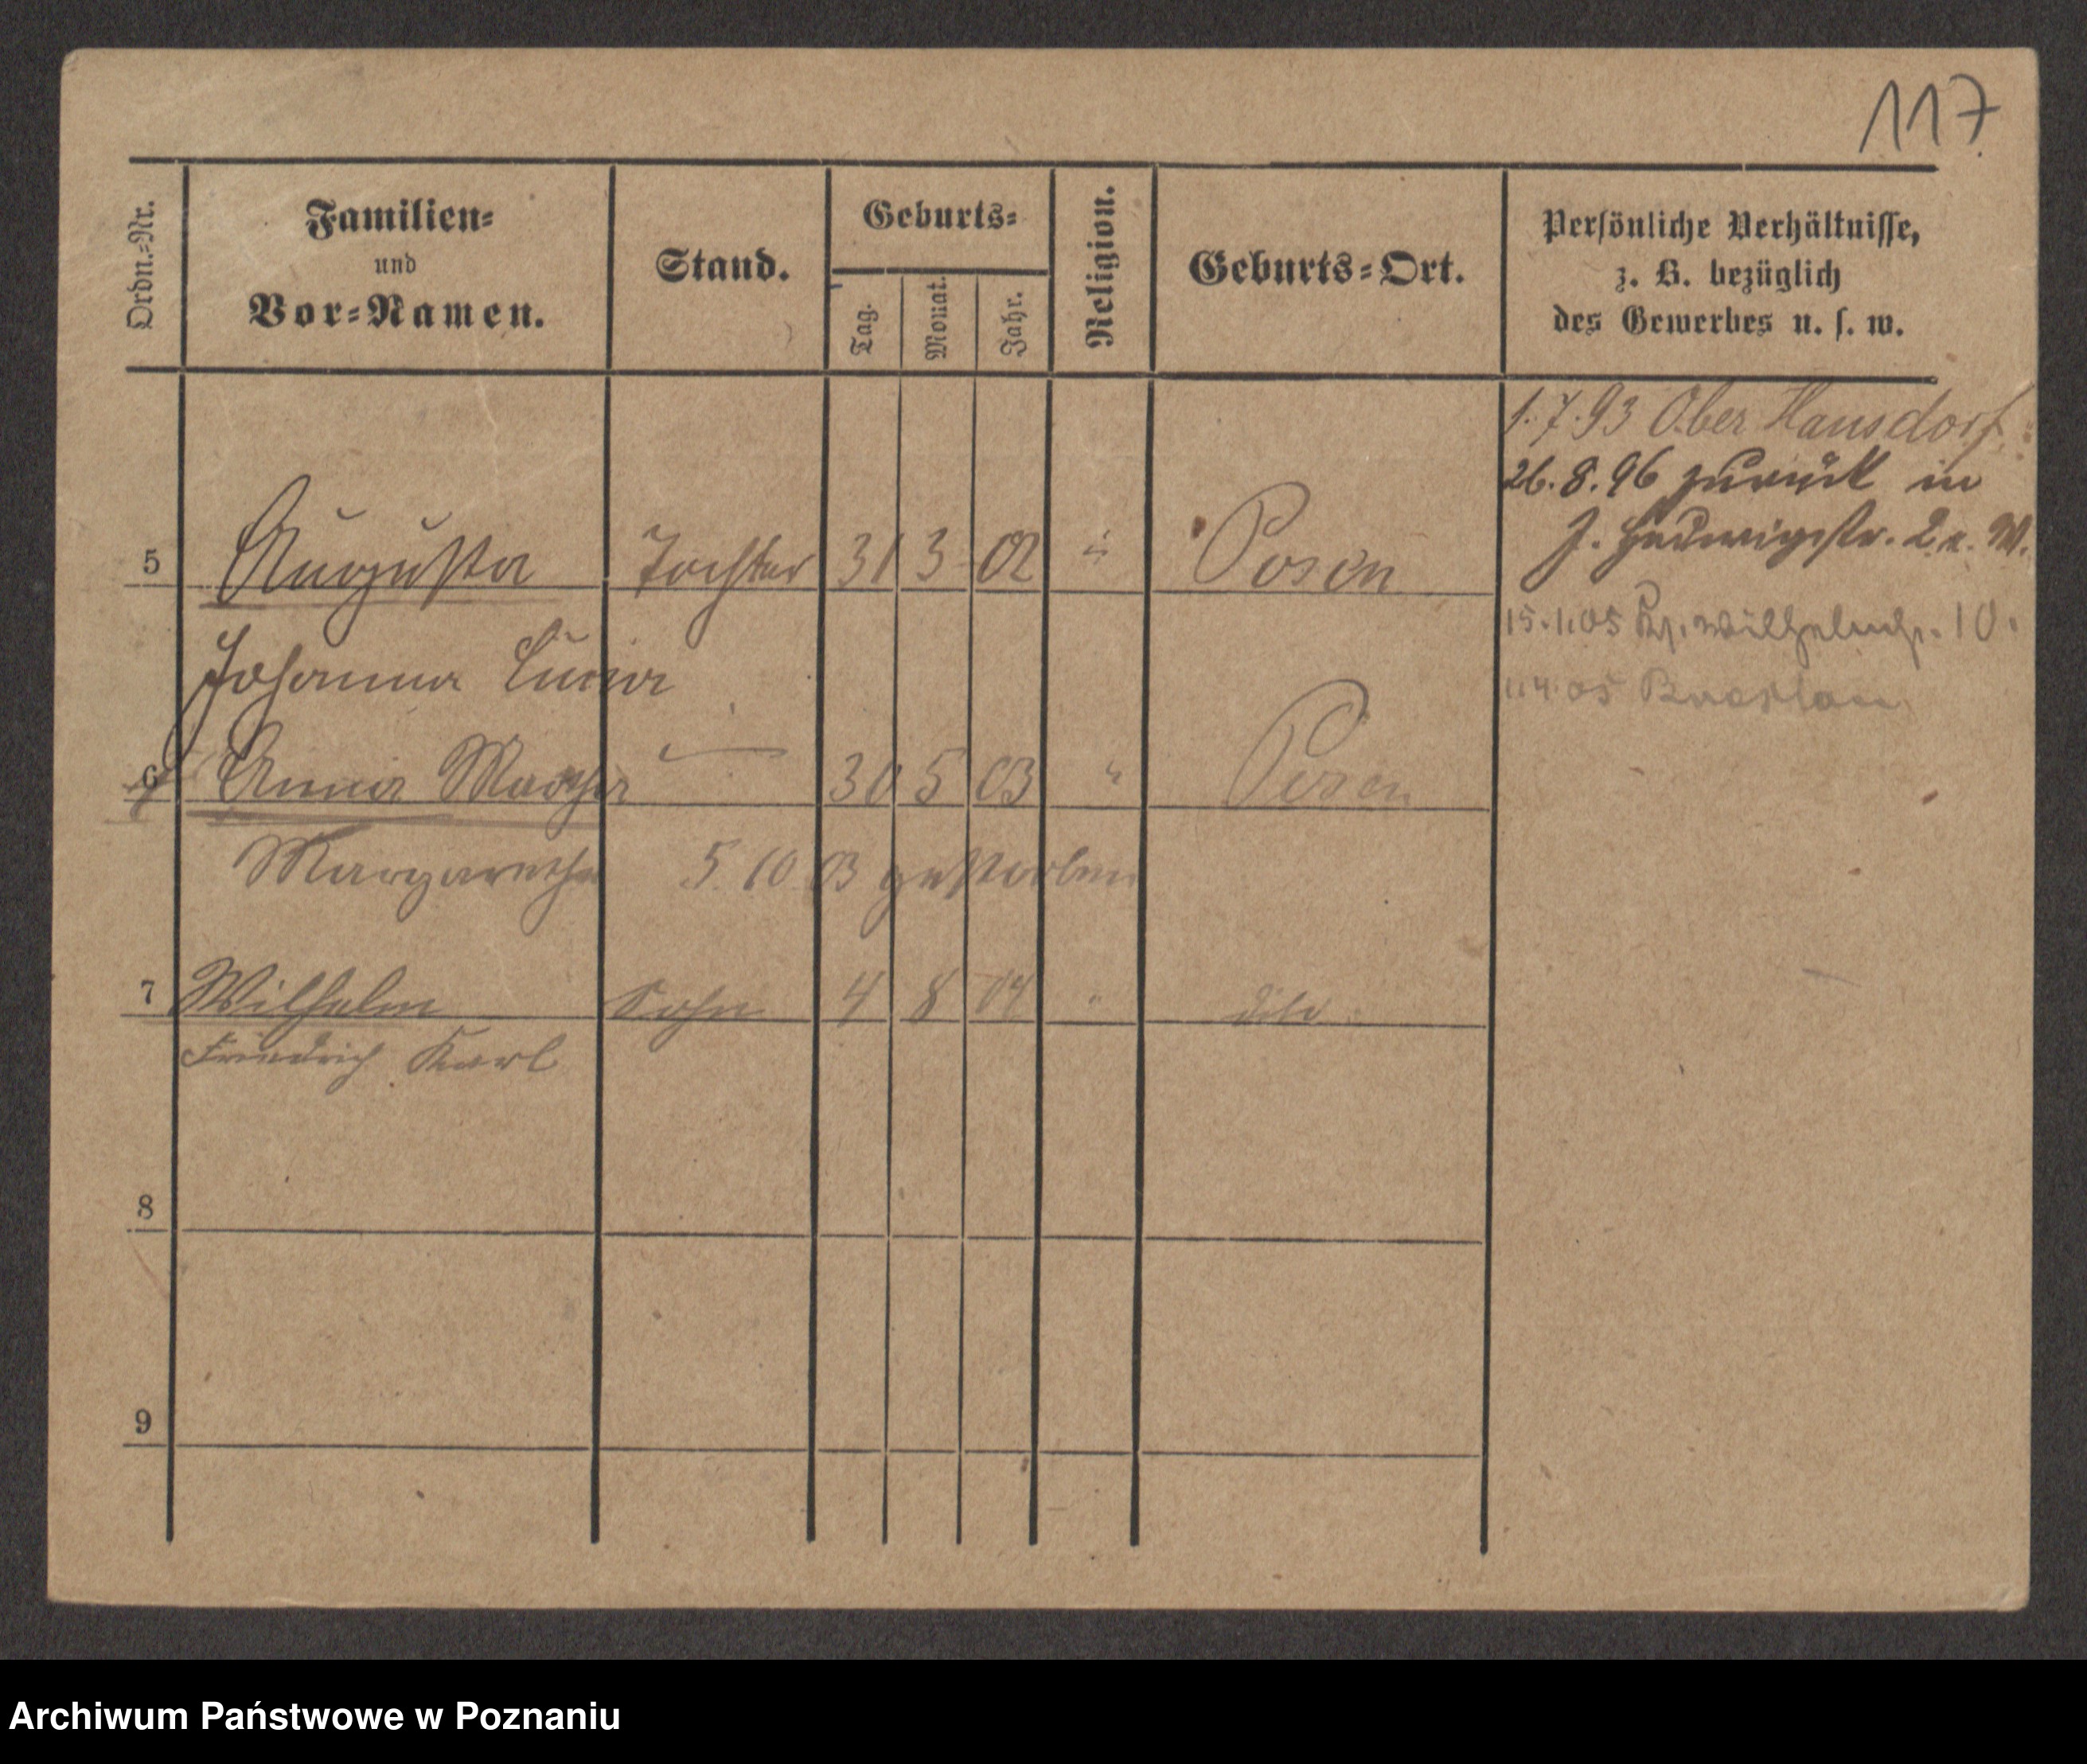 117
Ordn.-Nr.
Familien-
und
Vor-Namen.
Stand.
Geburts-
Tag.
Monat.
Jahr.
Religion.
Geburts-Ort.
Persönliche Verhältnisse,
z. B. bezüglich
des Gewerbes u. s. w.
1.7.93 Ober Hansdorf
26.8.96 zurück in
J. Hedwigstr. 2
5 Augusta Tochter 31 3 02 " Posen
15.1.05 Wilhelmstr. 10.
Johanna
1.4.05
6 Anna Martha 30 5 03 " Posen
Margarethe 5. 10. 03 gestorben
7 Wilhelm Sohn 4 8 04 " dito
Friedrich Karl
8
9
Archiwum Państwowe w Poznaniu